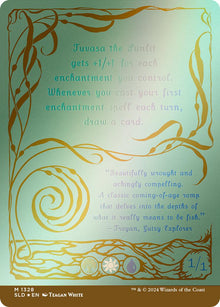 Tuvasa the Sunlit
gets +1/+1 for each
enchantment you control.
Whenever you cast your first
enchantment spell each turn,
draw a card.
"Beautifully wrought and
achingly compelling.
A classic coming-of-age romp
that delves into the depths of
what it really means to be fish."
—Troyan, Gutsy Explorer
1/1
M 1328
SLD ★ EN Teagan White
™ & © 2024 Wizards of the Coast